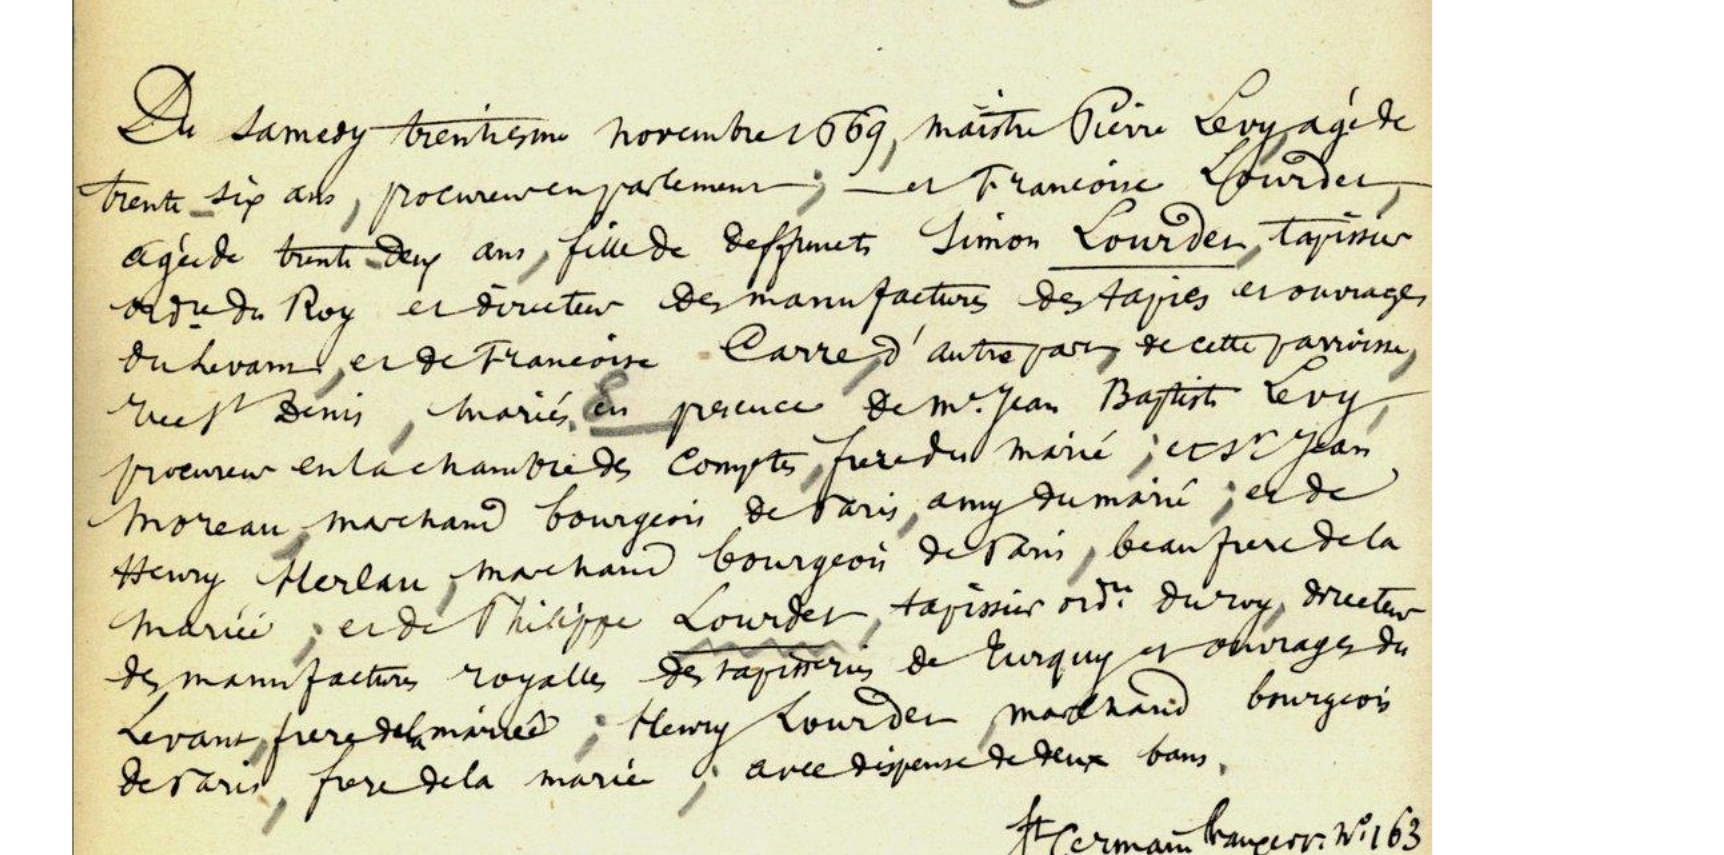 Du samedy trentiesme novembre 1669, maistre Pierre Levy, agé de
trente-six ans, procureur en parlement; et Francoise Lourdet,
agée de trente-deux ans, fille de deffuncts Simon Lourdet, tapissier
ordre du Roy et directeur des manufactures des tapies et ouvrages
du Levant, et de Francoise Carre, d'autre part, de cette parroisse,
rue St Denis, mariés en presence de me. Jean Baptiste Levy,
procureur en la chambre des comptes, frere du marié; et Sr Jean
Moreau, marchand bourgeois de Paris, amy du marié; et de
Henry Herlau, marchand bourgeois de Paris, beau frere de la
mariée; et de Philippe Lourdet, tapissier ordre du roy, directeur
des manufactures royalles des tapisseries de Turquy et ouvrages du
Levant, frere de la mariée; Henry Lourdet, marchand bourgeois
de Paris, frere de la mariée; avec dispense de deux bans.
St Germain No. 163